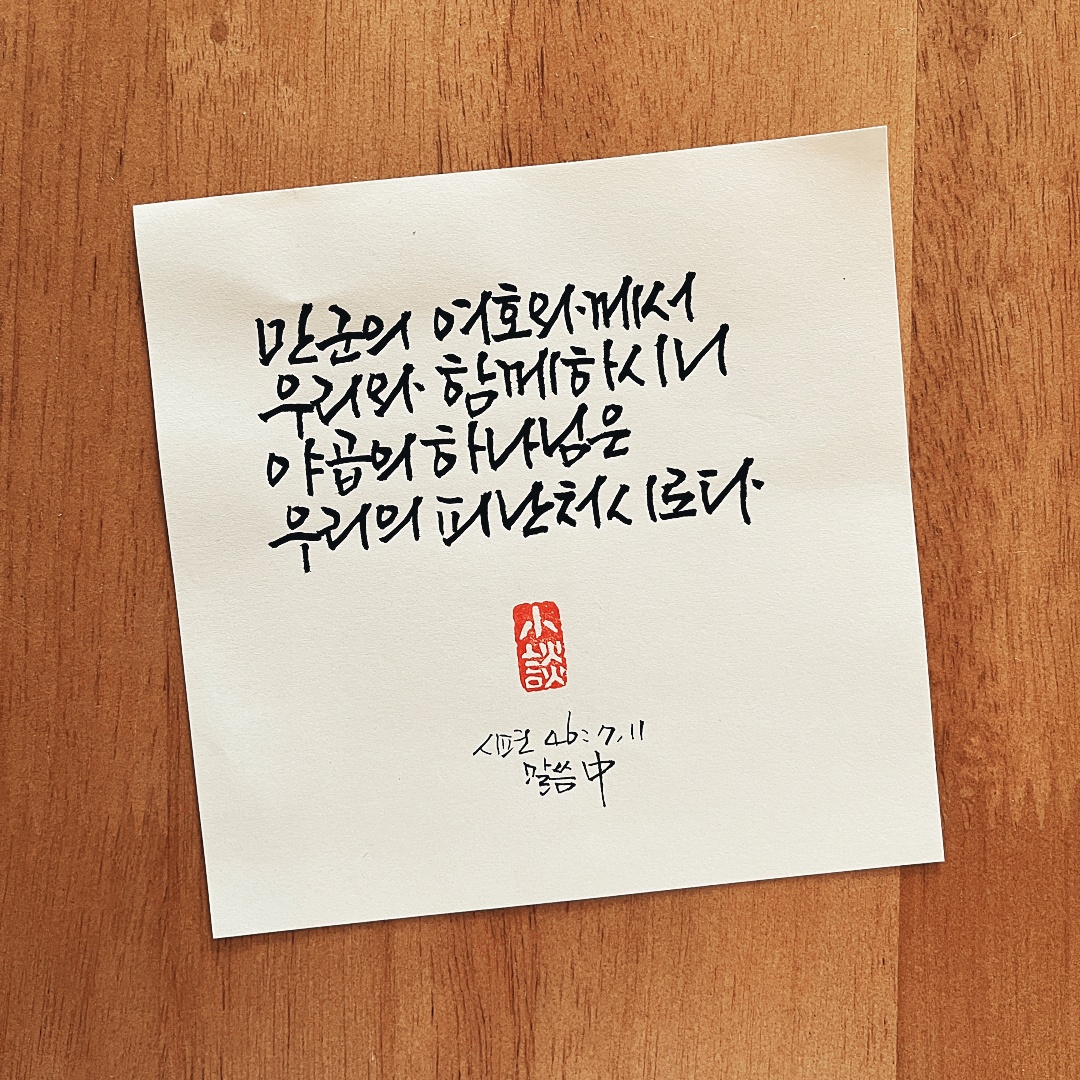 만군의 여호와께서
우리와 함께하시니
야곱의 하나님은
우리의 피난처시로다
小
談
시편 46:7,11
말씀 中